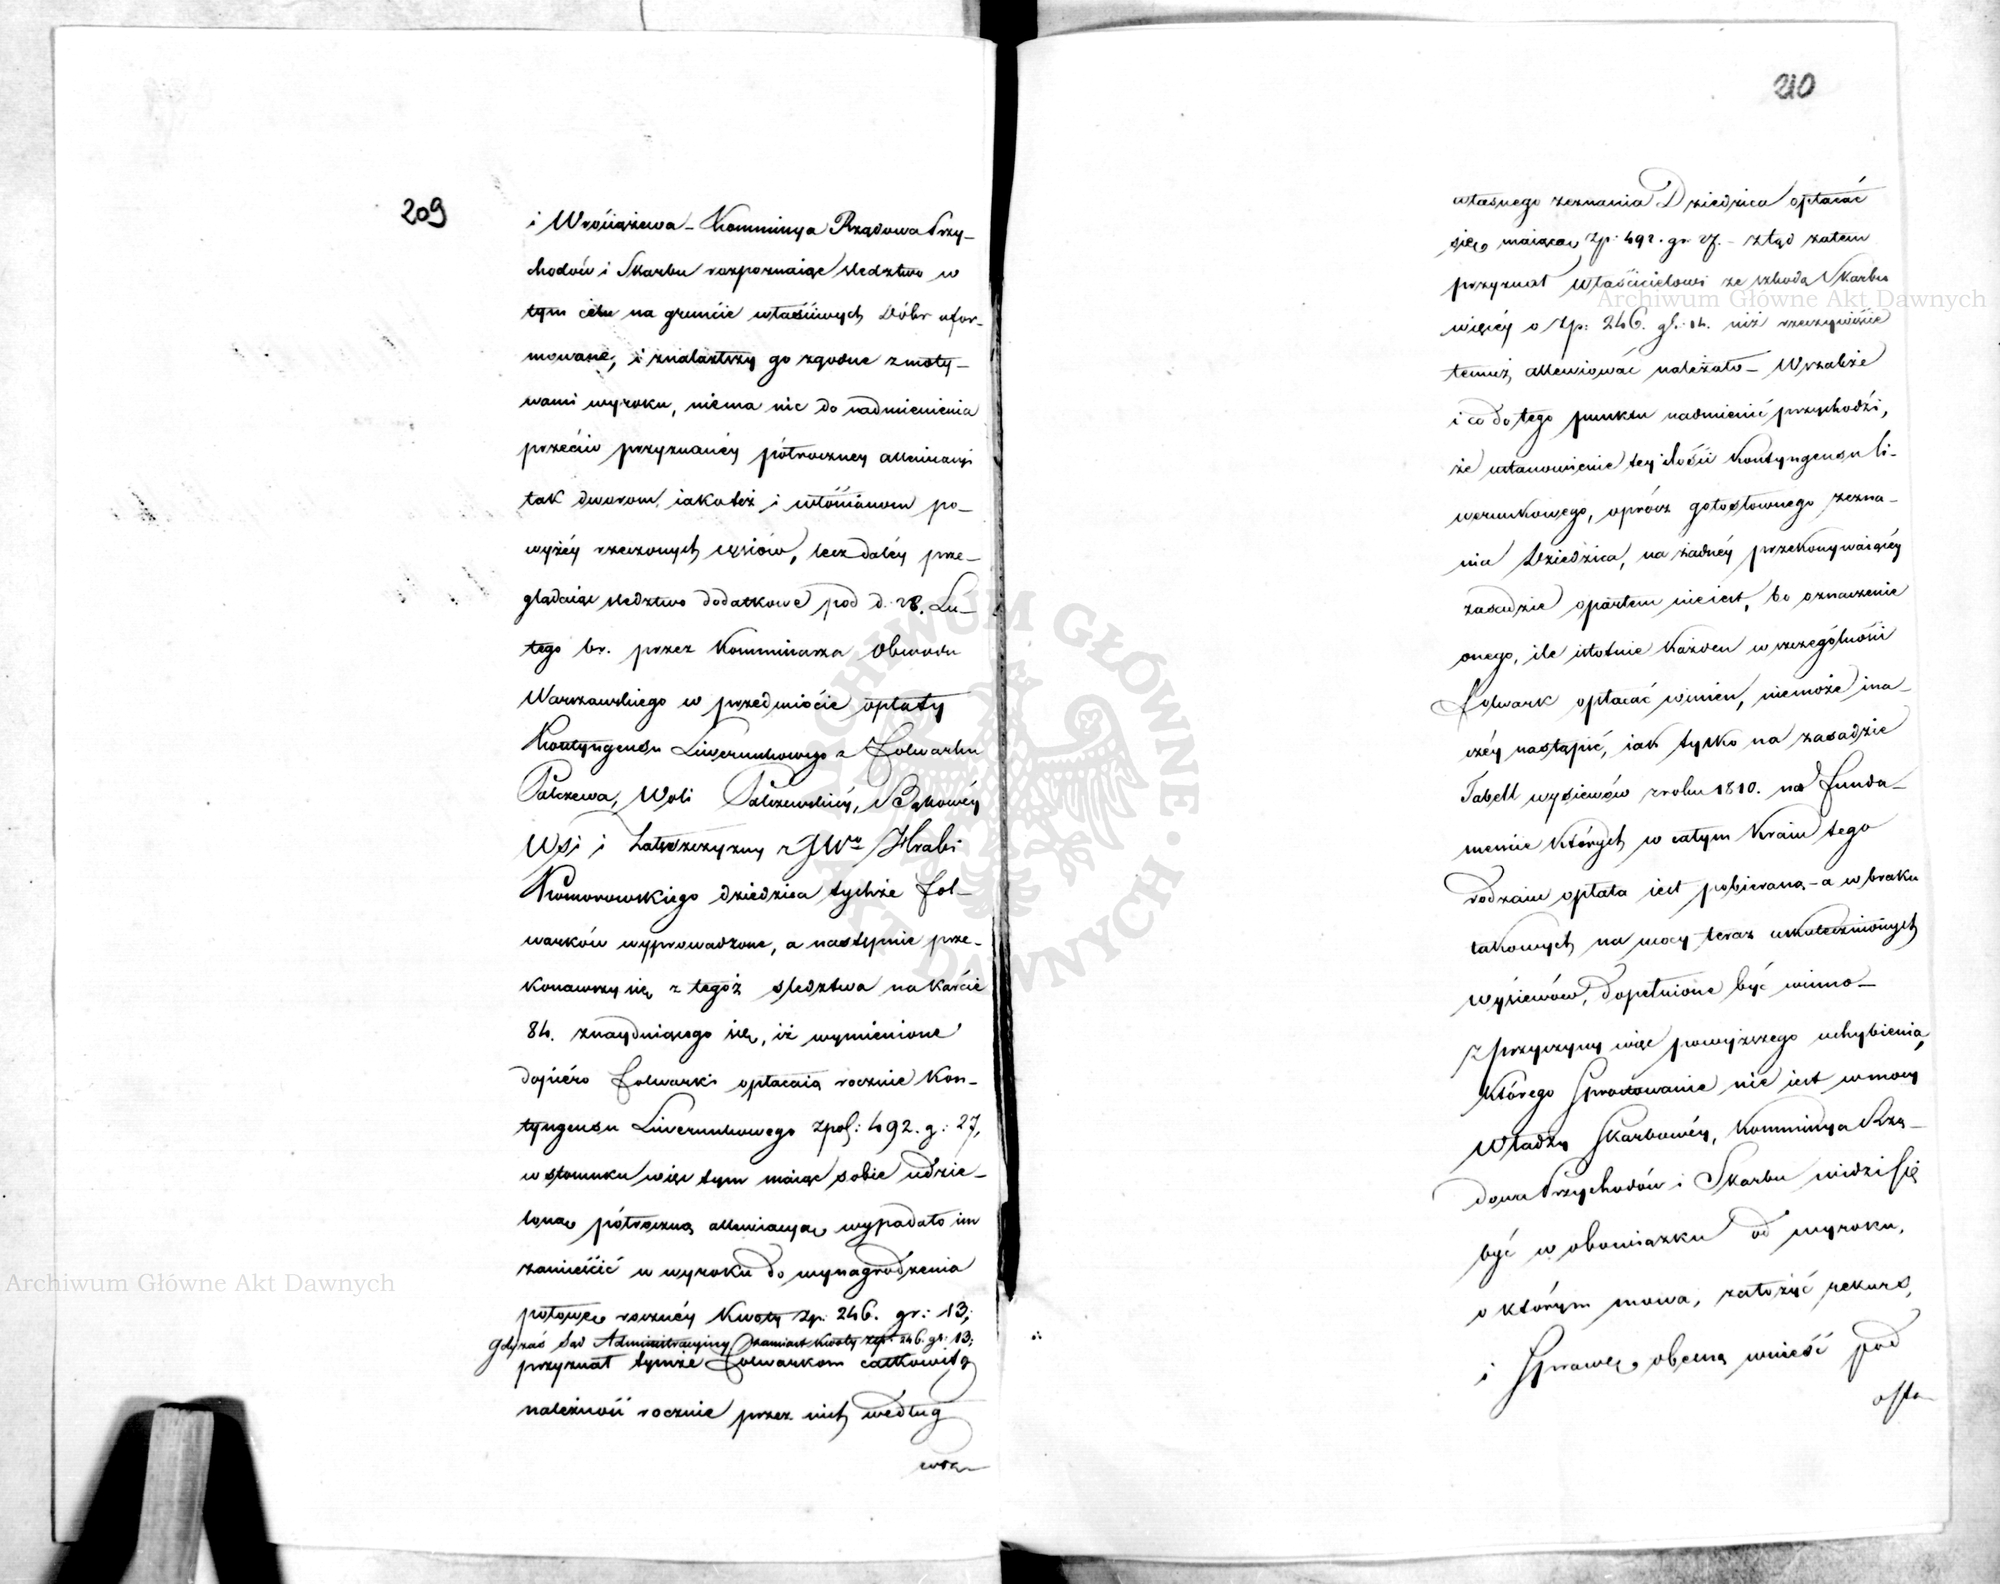 209
i Wróciążewa – Kommissya Rządowa Przy-
chodów i Skarbu rozpoznaiąc śledztwo w
tym celu na gruncie właściwych Dóbr ufor-
mowane, i znalazłszy go zgodne z moty-
wami wyroku, niema nic do nadmienienia
przeciw przyznanéy półroczney allewiacyi
tak dworom, iakoteż i włościanom po-
wyżéy rzeczonych wsiów, lecz daléy prze-
glądaiąc śledztwo dodatkowe pod d. 28. Lu-
tego br. przez Kommissarza Obwodu
Warszawskiego w przedmiocie opłaty
Kontyngensu Liwerunkowego z Folwarku
Palczewa, Woli Palczewskiéy,
Wsi i z JWo Hrabi
Komorowskiego dziedzica tychże fol-
warków wyprowadzone, a następnie prze-
konawszy się z tegoż śledztwa na karcie
84. znayduiącego się, iż wymienione
dopiéro Folwarki opłacaią rocznie Kon-
tyngensu Liwerunkowego zpol: 492. g: 27,
w stosunku więc tym maiąc sobie udzie-
loną półroczną allewiacyą wypadało im
zamieścić w wyroku do wynagrodzenia
połowę roczney kwoty zp: 246. gr: 13;
Gdy zaś Sąd Administracyiny zamiast kwoty zp: 246. gr: 13;
przyznał tymże Folwarkom całkowitą
należność rocznie przez nich według
wła-
210
własnego zeznania Dziedzica opłacać
się maiącą zp: 492. gr. 27. – ztąd zatem
przyznał Właścicielowi ze szkodą Skarbu
więcéy o zp: 246. gr. 14. niż rzeczywiście
temuż allewiować należało –
i co do tego punktu nadmienić przychodzi,
że ustanowienie tey ilości Kontyngensu li-
werunkowego, oprócz gołosłownego zezna-
nia Dziedzica, na żadnéy przekonywaiącéy
zasadzie opartem nie iest, bo oznaczenie
onego, ile istotnie każden w szczególności
Folwark opłacać winien, niemoże ina-
czéy nastąpić, iak tylko na zasadzie
Tabell wysiewów z roku 1810. na funda-
mencie których w całym Kraiu tego
rodzaiu opłata iest pobieraną – a w braku
takowych na mocy teraz uskutecznionych
wysiewów, dopełnione być winno –
Z przyczyny więc powyższego uchybienia,
którego sprostowanie nie iest w mocy
Władzy Skarbowéy, Kommissya Rzą-
dowa Przychodów i Skarbu widzi się
być w obowiązku od wyroku,
o którym mowa, założyć rekurs,
i Sprawę obecną wnieść pod
osta-
Archiwum Główne Akt Dawnych
Archiwum Główne Akt Dawnych
ARCHIWUM GŁÓWNE AKT DAWNYCH